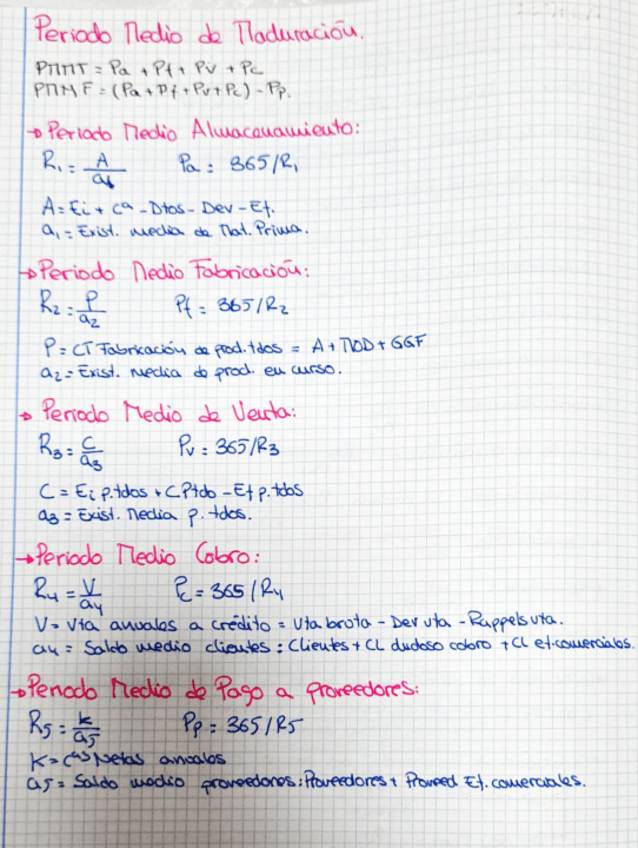 Periodo Medio de Maduración.
PMMT = Pa + Pf + Pv + Pc
PMMF = (Pa + Pf + Pv + Pc) - Pp.
→ Periodo Medio Almacenamiento:
R₁ = A / a₁ Pa = 365/R₁
A = Ei + Cª - Dtos - Dev - Ef.
a₁ = Exist. media de Mat. Prima.
→ Periodo Medio Fabricación:
R₂ = P / a₂ Pf = 365/R₂
P = CT Fabricación de prod. tdos = A + MOD + GGF
a₂ = Exist. media de prod. en curso.
→ Periodo Medio de Venta:
R₃ = C / a₃ Pv = 365/R₃
C = Ei p. tdos + C Ptdo - Ef p. tdos
a₃ = Exist. Media p. tdos.
→ Periodo Medio Cobro:
R₄ = V / a₄ Pc = 365/R₄
V = Vta anuales a crédito = Vta bruta - Dev vta - Rappels vta.
a₄ = Saldo medio clientes: Clientes + CL dudoso cobro + CL ef. comerciales.
→ Periodo Medio de Pago a proveedores:
R₅ = k / a₅ Pp = 365/R₅
K = Cªs Netas anuales
a₅ = Saldo medio proveedores: Proveedores + Proveed Ef. comerciales.